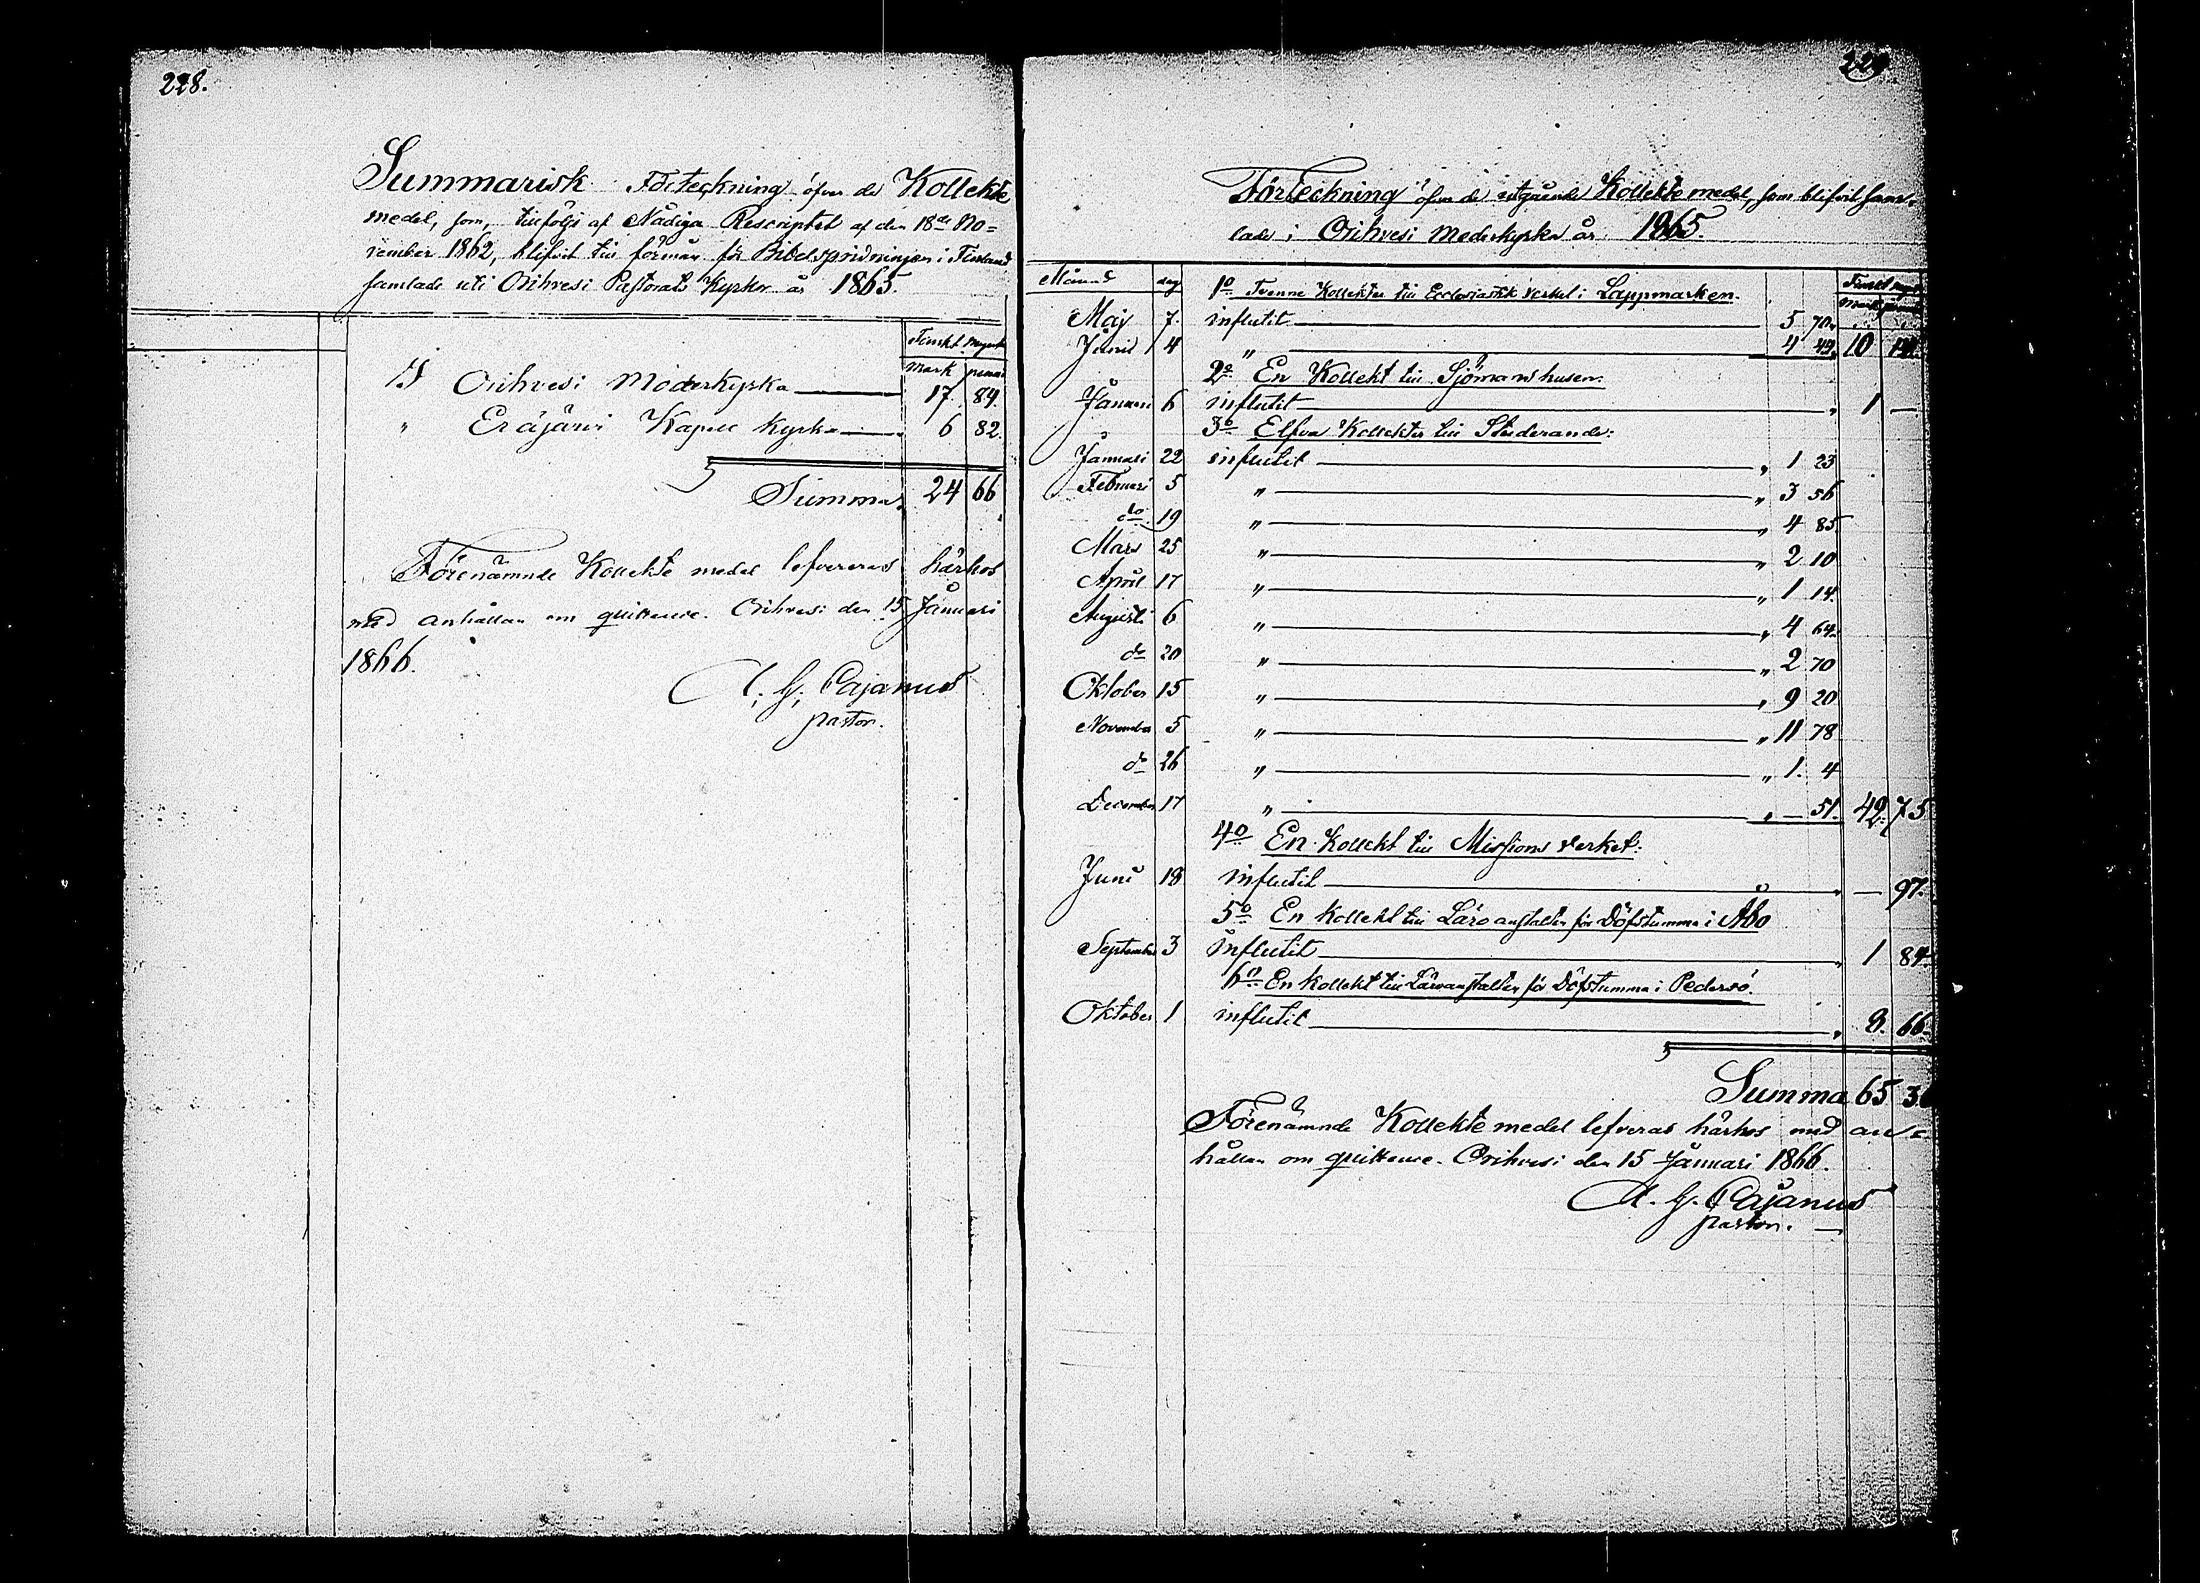 228.
Summarisk Förteckning öfver de Kollekte
medel, som, tillfölje af Nådiga Rescriptet af den 18de No=
vember 1862, blifvit till förmån för Bibelspridningen i Finland
samlade uti Orihvesi Pastorats Kyrkor år 1865.
Finskt mynt
Mark penni
I Orihvesi Moderkyrka 17. 84.
" Eräjärvi Kapell Kyrka 6 82.
Summa 24 66
Förenämnde Kollekte medel lefvereras härhos
med anhållan om quittence. Orihvesi den 15 Januari
1866.
A. G. Cajanus
pastor.
229.
Förteckning öfver de utgående Kollekte medel, som blifvit sam-
lade i Orihvesi Moderkyrka år 1865.
Månad dag 1o Tvenne Kollekter till Ecclesiastik verket i Lappmarken. Finskt mynt
Mark penni
Maj 7. influtit 5 70
Junii 4 " 4 49 10 19
2o En Kollekt till Sjömanshusen.
Januari 6 influtit " 1 —
3o Elfva Kollekter till Studerande:
Januari 22 influtit " 1 23
Februari 5 " " 3 56
do 19 " " 4 85
Mars 25 " " 2 10
April 17 " " 1 14.
Augusti 6 " " 4 64.
do 20 " " 2 70
Oktober 15 " " 9 20
November 5 " " 11 78
do 26 " " 1. 4
December 17 " " — 51. 42 75
4o En Kollekt till Missions verket.
Juni 18 influtit " — 97.
5o En Kollekt till Läroanstalten för Döfstumma i Åbo
September 3 influtit " 1 84
6o En Kollekt till Läroanstalten för Döfstumma i Pedersö.
Oktober 1 influtit " 8. 66
Summa 65 36
Förenämnde Kollekte medel lefveras härhos med an=
hållan om quittence. Orihvesi den 15 Januari 1866.
A. G. Cajanus
pastor.